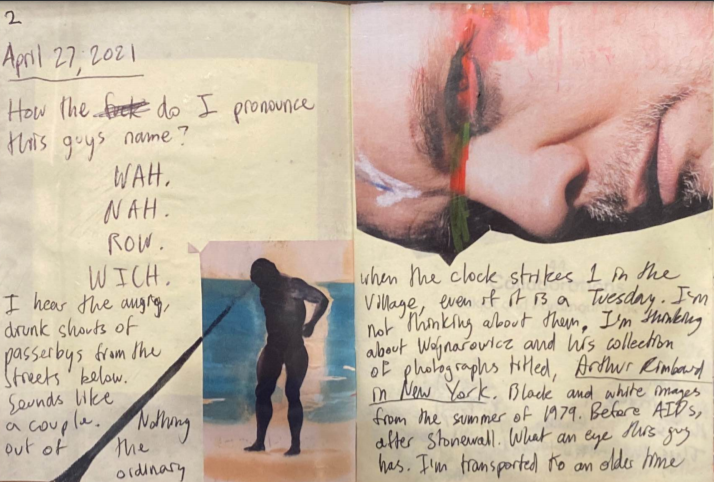 2
April 27, 2021
How the fuck do I pronounce
this guys name?
WAH.
NAH.
ROW.
WICH.
I hear the angry,
drunk shouts of
passerbys from the
streets below.
Sounds like
a couple. Nothing
out of the
ordinary
when the clock strikes 1 in the
Village, even if it is a Tuesday. I'm
not thinking about them, I'm thinking
about Wojnarowicz and his collection
of photographs titled, Arthur Rimbaud
in New York. Black and white images
from the summer of 1979. Before AIDs,
after Stonewall. What an eye this guy
has. I'm transported to an older time